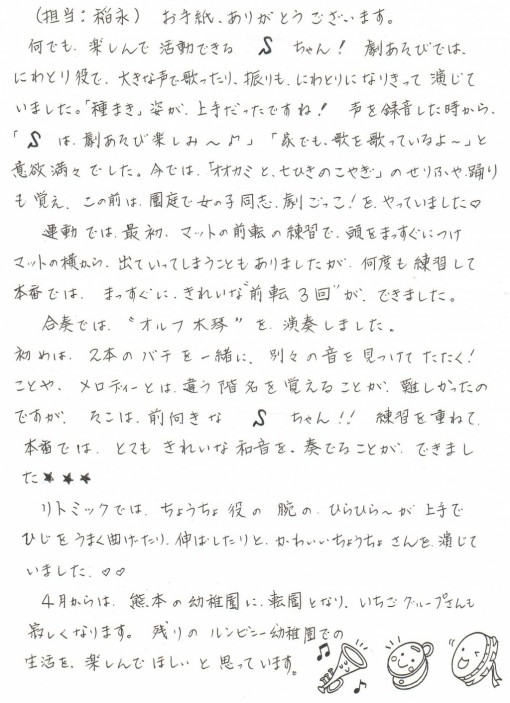 （担当：稲永） お手紙、ありがとうございます。
何でも、楽しんで活動できる S ちゃん！ 劇あそびでは、
にわとり役で、大きな声で歌ったり、振りも、にわとりになりきって演じて
いました。「種まき」姿が、上手だったですね！ 声を録音した時から、
「S は、劇あそび楽しみ〜♪」「家でも、歌を歌っているよ〜」と
意欲満々でした。今では、「オオカミと、七ひきのこやぎ」のせりふや、踊り
も覚え、この前は、園庭で女の子同志、劇ごっこ！を、やっていました♡
運動では、最初、マットの前転の練習で、頭をまっすぐにつけ
マットの横から、出ていってしまうこともありましたが、何度も練習して
本番では、まっすぐに、きれいな“前転3回”が、できました。
合奏では、“オルフ木琴”を、演奏しました。
初めは、2本のバチを一緒に、別々の音を見つけてたたく！
ことや、メロディーとは、違う階名を覚えることが、難しかったの
ですが、そこは、前向きな S ちゃん！！ 練習を重ねて、
本番では、とてもきれいな和音を、奏でることが、できまし
た★★★
リトミックでは、ちょうちょ役の腕の、ひらひら〜が上手で
ひじをうまく曲げたり、伸ばしたりと、かわいいちょうちょさんを、演じて
いました。♡♡
4月からは、熊本の幼稚園に、転園となり、いちごグループさんも
寂しくなります。残りのルンビニー幼稚園での
生活を、楽しんでほしいと思っています。